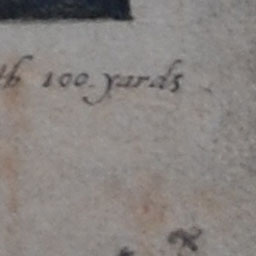 th 100. yards